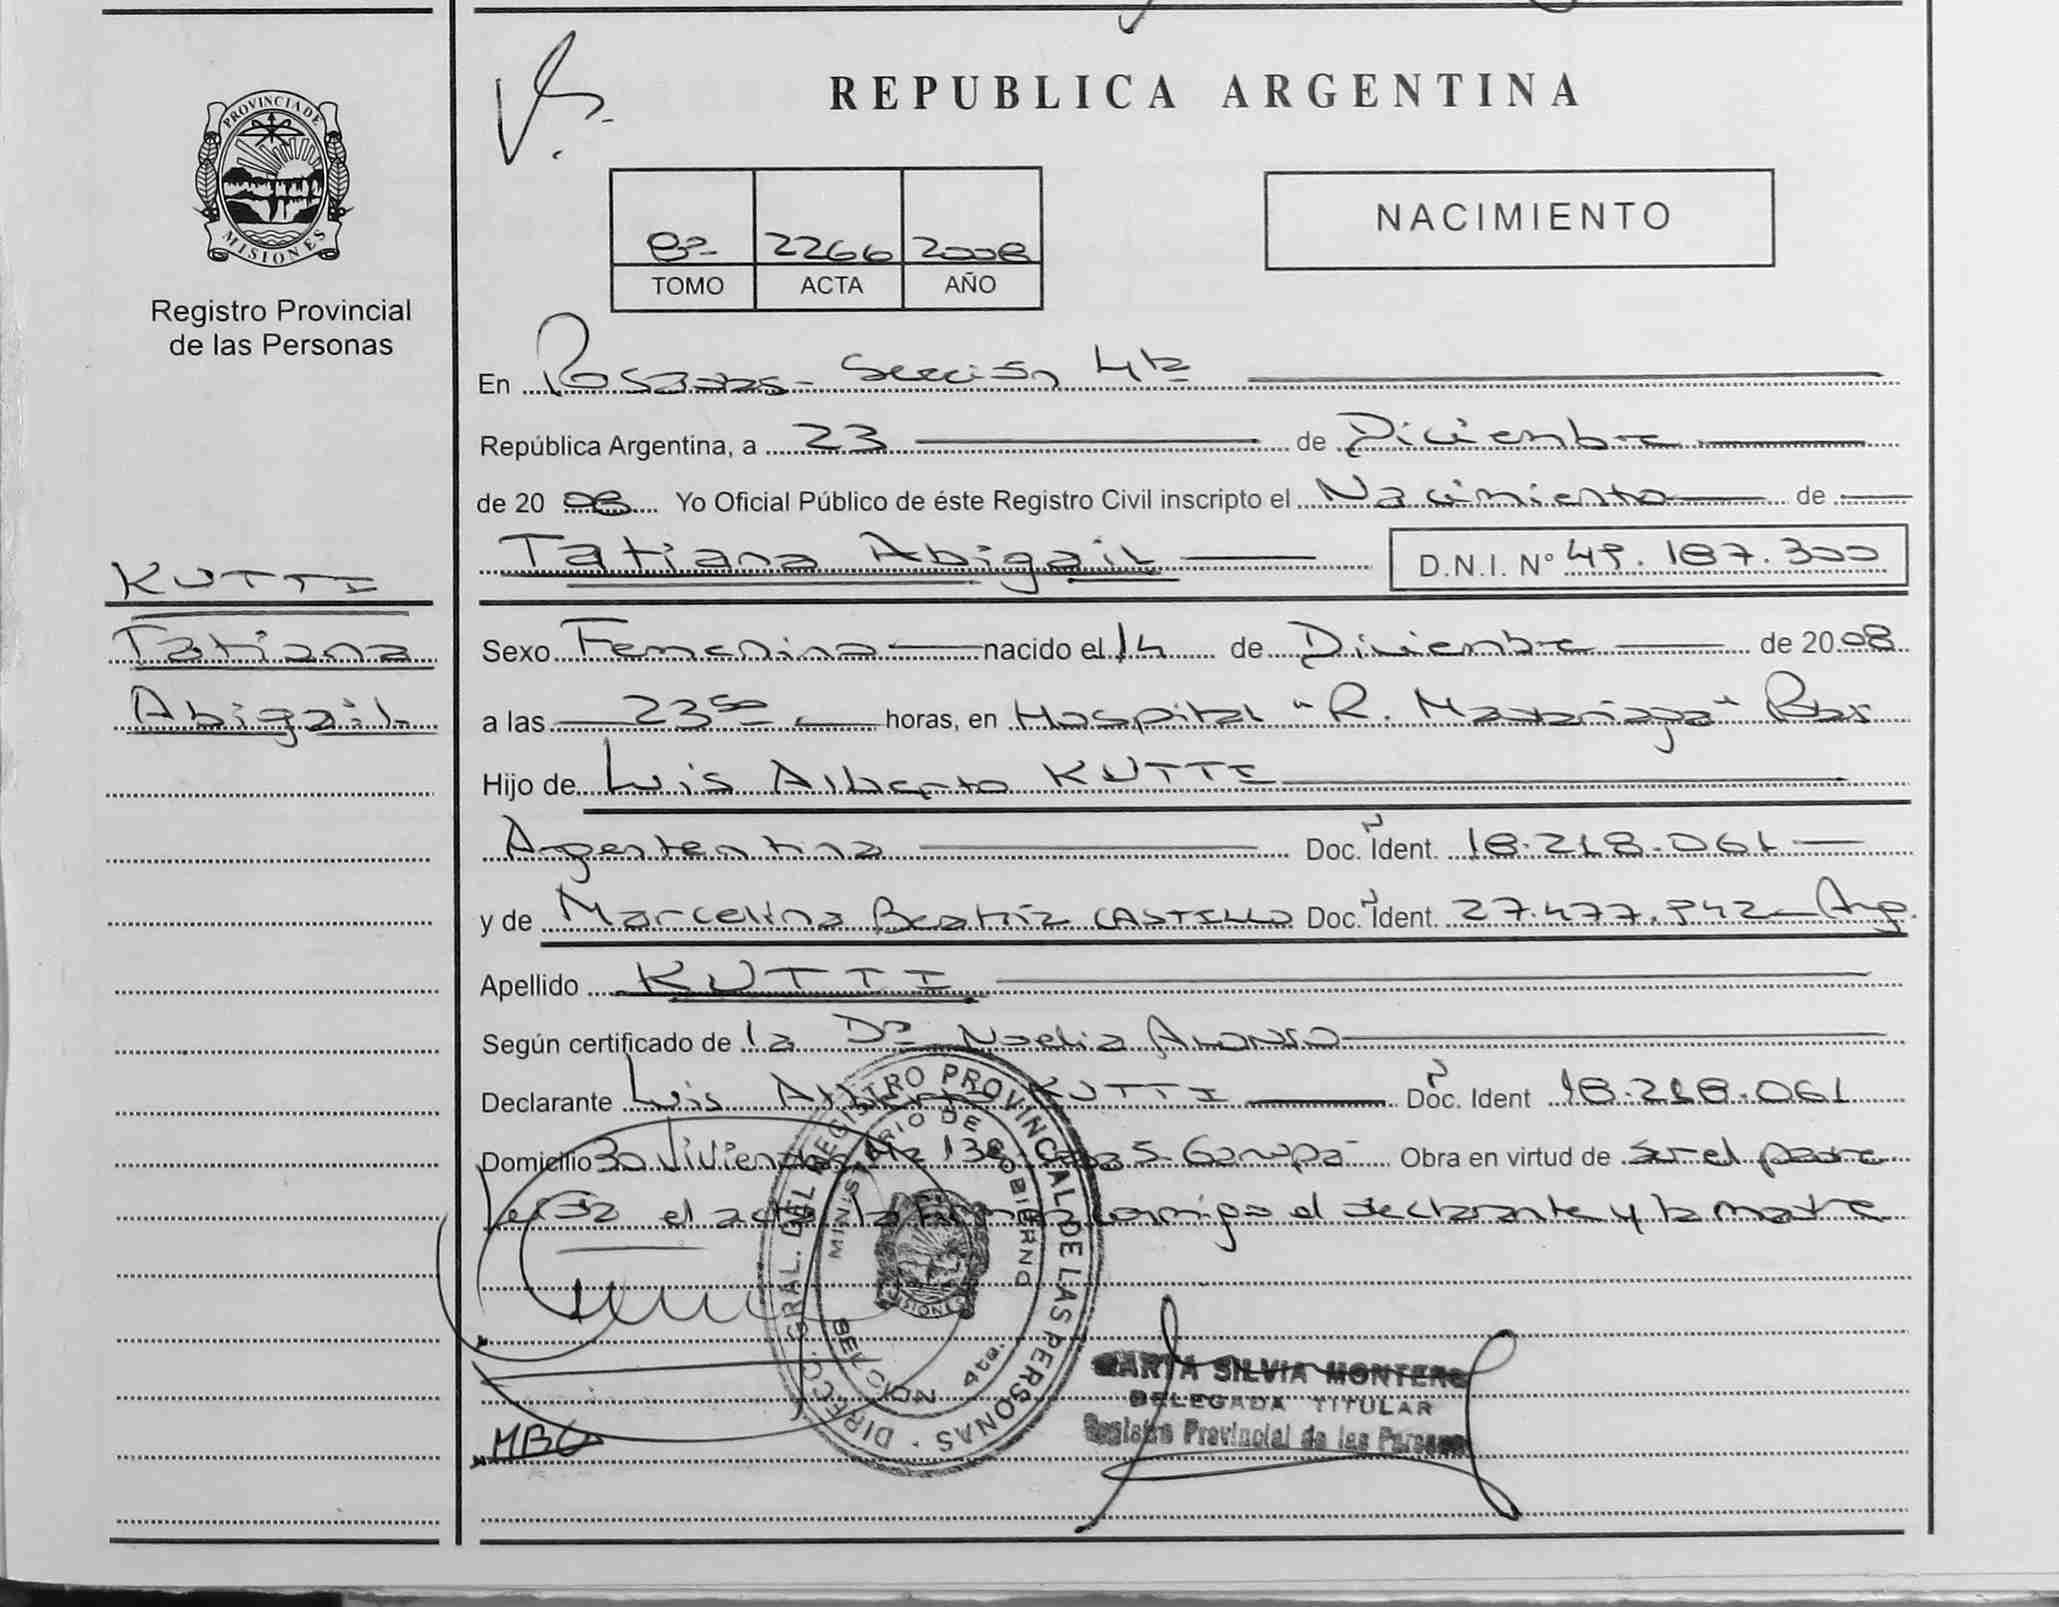 REPUBLICA ARGENTINA
PROVINCIA DE
MISIONES
Registro Provincial
de las Personas
8º 2266 2008
TOMO ACTA AÑO
NACIMIENTO
En Posadas - Sección 4ta
República Argentina, a 23 de Diciembre
de 2008 Yo Oficial Público de éste Registro Civil inscripto el Nacimiento de
Tatiana Abigail D.N.I. Nº 49.187.300
KUTTI
Tatiana
Abigail
Sexo Femenina nacido el 14 de Diciembre de 2008
a las 23 50 horas, en Hospital "R. Madariaga" Pdas
Hijo de Luis Alberto KUTTI
Argententina Doc. Ident. 18.218.061
y de Marcelina Beatriz CASTILLO Doc. Ident. 27.477.942 - Arg.
Apellido KUTTI
Según certificado de la Dra Noelia ALONSO
Declarante Luis Alberto KUTTI Doc. Ident 18.218.061
Domicilio 30 Viviendas Mz 138 Casa 5 - Garupá - Obra en virtud de ser el padre
Leída el acta la firman conmigo el declarante y la madre
DIRECC. GRAL. DEL REGISTRO PROVINCIAL DE LAS PERSONAS
MINISTERIO DE GOBIERNO
MISIONES
SECCION 4ta.
MARTA SILVIA MONTERO
DELEGADA TITULAR
Registro Provincial de las Personas
MBC